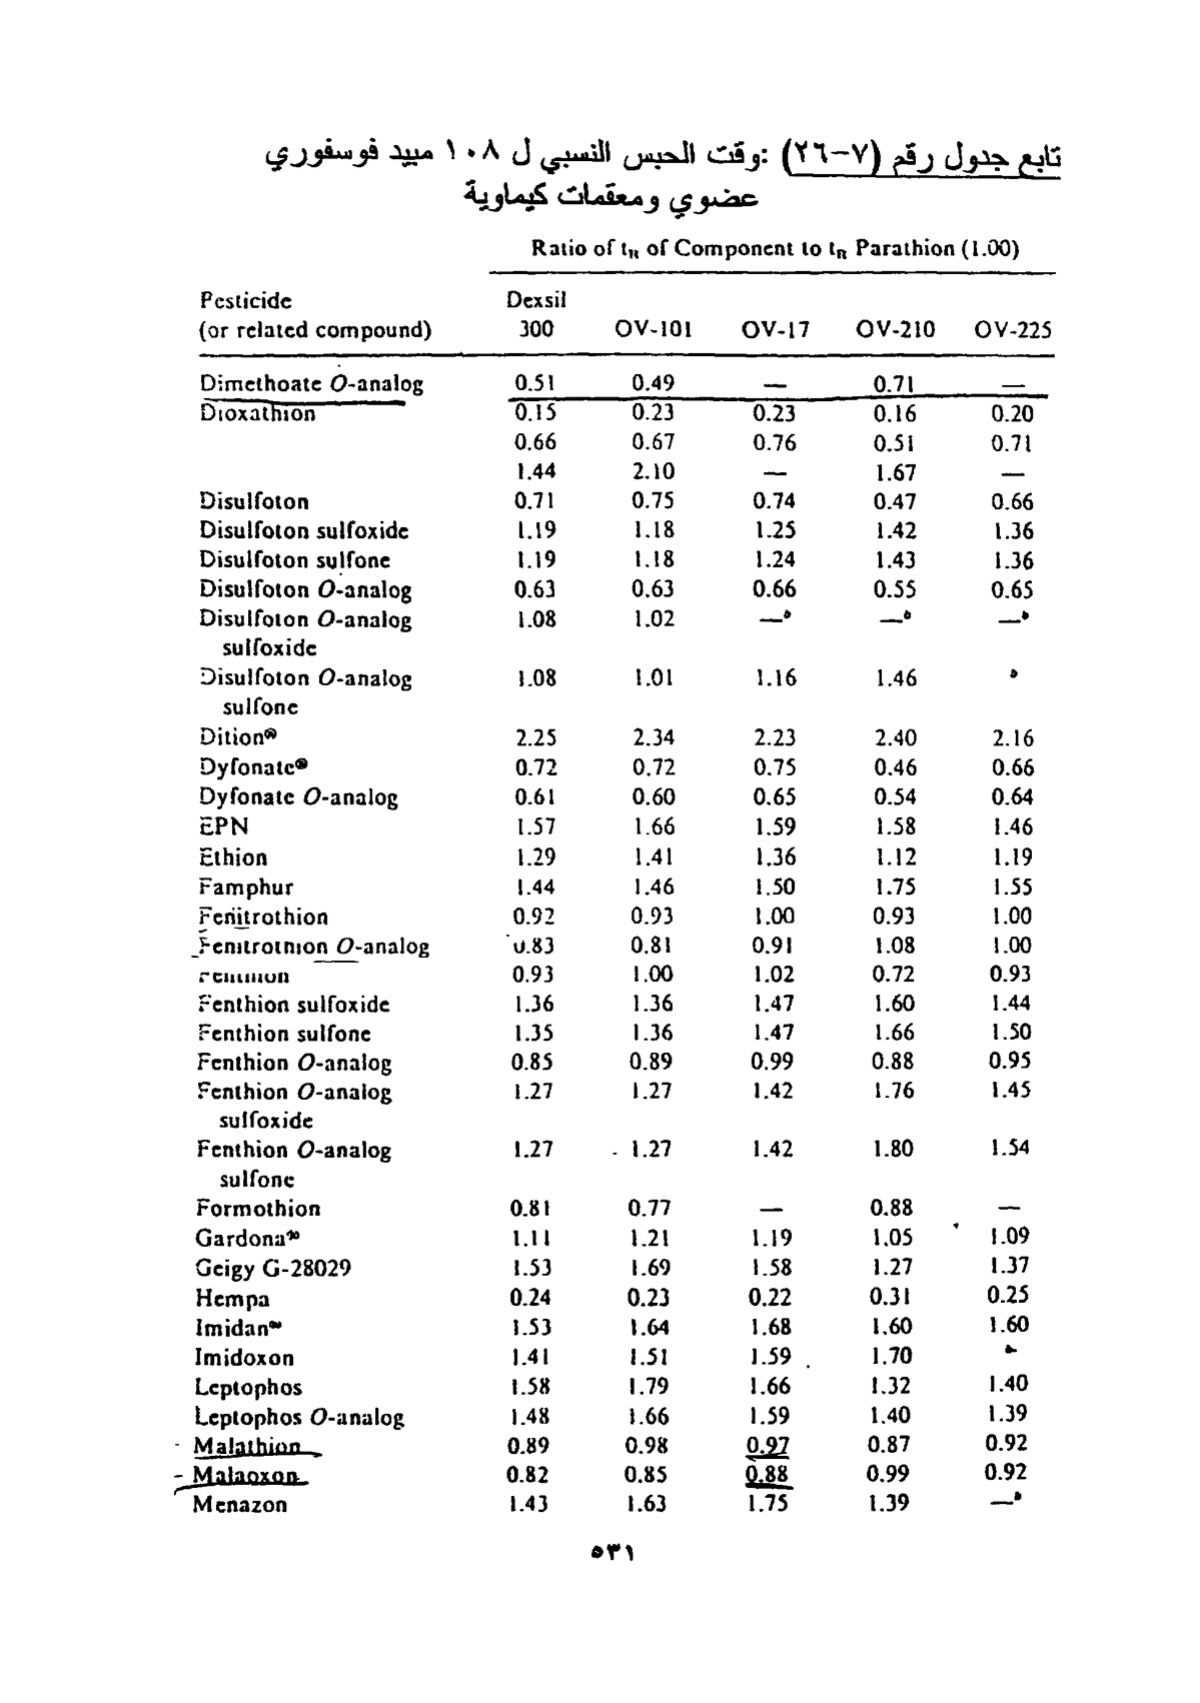 تابع جدول رقم (٧-٢٦) :وقت الحبس النسبي ل ١٠٨ مبيد فوسفوري
عضوي ومعقمات كيماوية
Ratio of tR of Component to tR Parathion (1.00)
Pesticide Dexsil
(or related compound) 300 OV-101 OV-17 OV-210 OV-225
Dimethoate O-analog 0.51 0.49 — 0.71 —
Dioxathion 0.15 0.23 0.23 0.16 0.20
0.66 0.67 0.76 0.51 0.71
1.44 2.10 — 1.67 —
Disulfoton 0.71 0.75 0.74 0.47 0.66
Disulfoton sulfoxide 1.19 1.18 1.25 1.42 1.36
Disulfoton sulfone 1.19 1.18 1.24 1.43 1.36
Disulfoton O-analog 0.63 0.63 0.66 0.55 0.65
Disulfoton O-analog 1.08 1.02 —b —b —b
sulfoxide
Disulfoton O-analog 1.08 1.01 1.16 1.46 b
sulfone
Dition® 2.25 2.34 2.23 2.40 2.16
Dyfonate® 0.72 0.72 0.75 0.46 0.66
Dyfonate O-analog 0.61 0.60 0.65 0.54 0.64
EPN 1.57 1.66 1.59 1.58 1.46
Ethion 1.29 1.41 1.36 1.12 1.19
Famphur 1.44 1.46 1.50 1.75 1.55
Fenitrothion 0.92 0.93 1.00 0.93 1.00
Fenitrothion O-analog 0.83 0.81 0.91 1.08 1.00
Fenthion 0.93 1.00 1.02 0.72 0.93
Fenthion sulfoxide 1.36 1.36 1.47 1.60 1.44
Fenthion sulfone 1.35 1.36 1.47 1.66 1.50
Fenthion O-analog 0.85 0.89 0.99 0.88 0.95
Fenthion O-analog 1.27 1.27 1.42 1.76 1.45
sulfoxide
Fenthion O-analog 1.27 1.27 1.42 1.80 1.54
sulfone
Formothion 0.81 0.77 — 0.88 —
Gardona® 1.11 1.21 1.19 1.05 1.09
Geigy G-28029 1.53 1.69 1.58 1.27 1.37
Hempa 0.24 0.23 0.22 0.31 0.25
Imidan® 1.53 1.64 1.68 1.60 1.60
Imidoxon 1.41 1.51 1.59 1.70 b
Leptophos 1.58 1.79 1.66 1.32 1.40
Leptophos O-analog 1.48 1.66 1.59 1.40 1.39
Malathion 0.89 0.98 0.97 0.87 0.92
Malaoxon 0.82 0.85 0.88 0.99 0.92
Menazon 1.43 1.63 1.75 1.39 —b
٥٣١